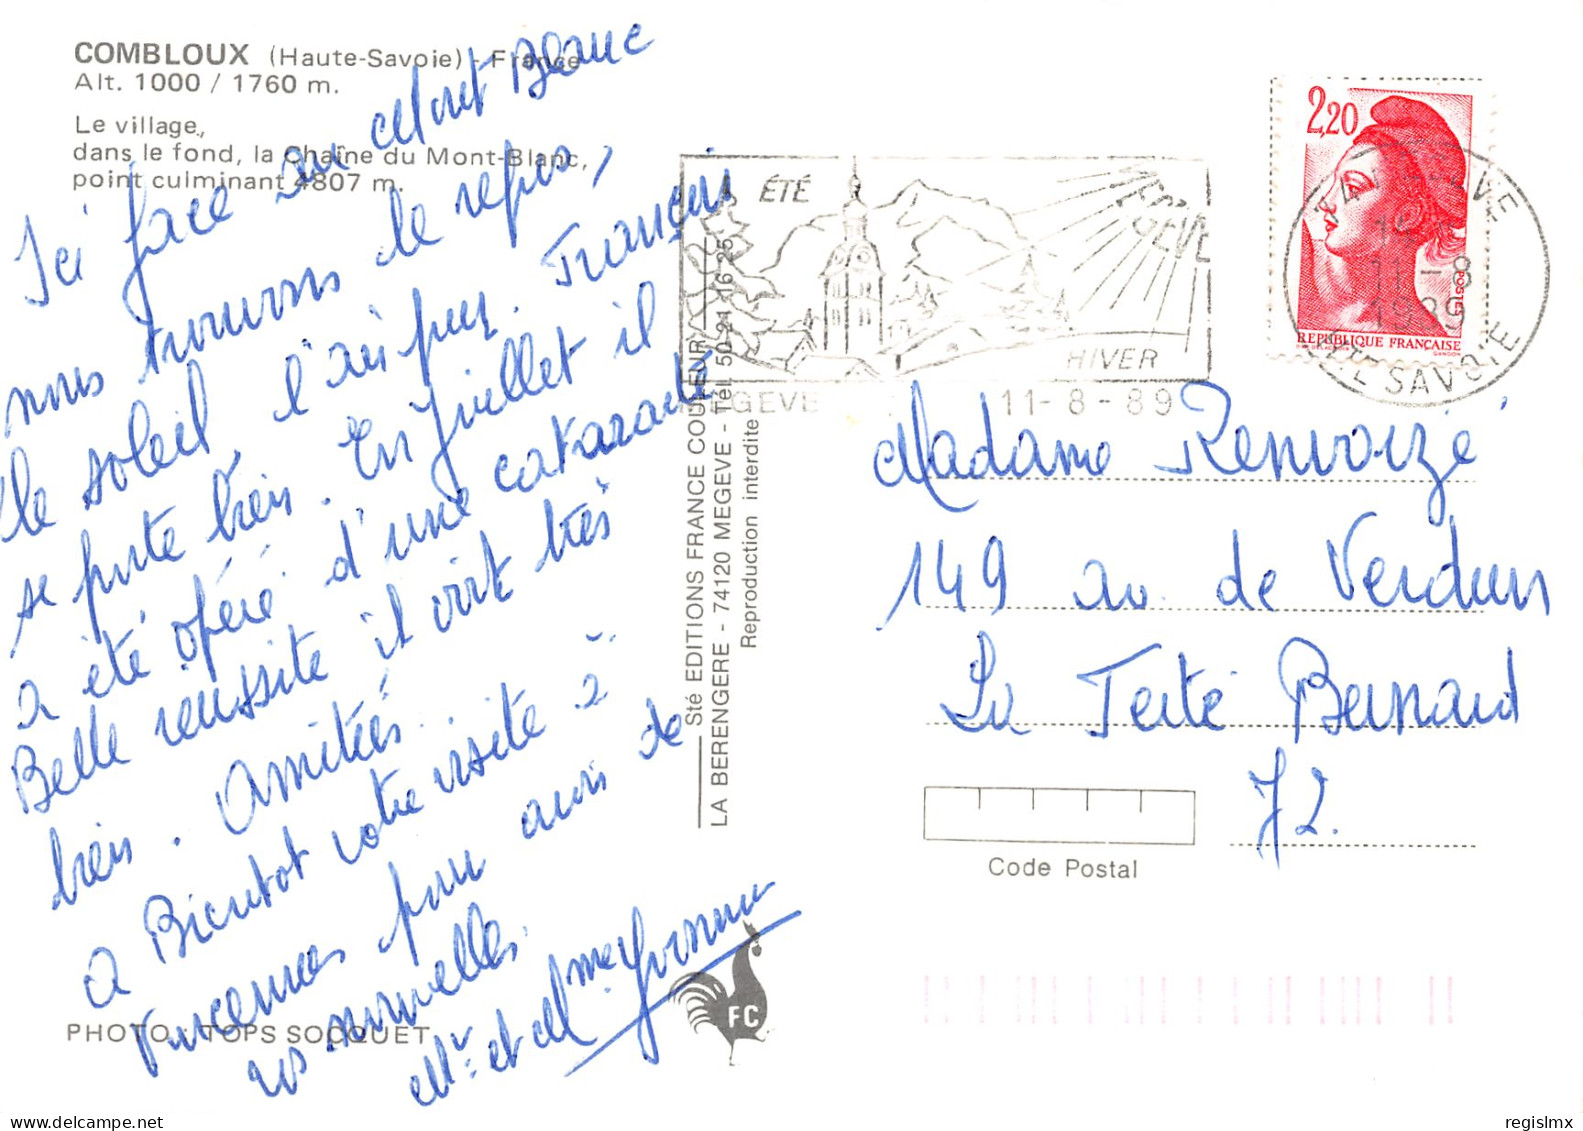 COMBLOUX (Haute-Savoie) - France
Alt. 1000 / 1760 m.
Le village,
dans le fond, la Chaîne du Mont-Blanc,
point culminant 4807 m.
Ici face au Mont Blanc
nous trouvons le repos,
le soleil l'air pur. François
se porte bien. En Juillet il
a été opéré d'une cataracte
Belle réussite il voit très
bien. Amitiés.
A Bientot votre visite à
Vincennes pour avoir de
vos nouvelles.
Mr. et Mme
PHOTO : TOPS SOCQUET
FC
Sté EDITIONS FRANCE COULEUR
LA BERENGERE - 74120 MEGEVE - Tél. 50 21 16 25
Reproduction interdite
ÉTÉ
MEGEVE
HIVER
MEGEVE
11-8-89
2,20
POSTES
REPUBLIQUE FRANÇAISE
GANDON
74 MEGEVE
11-8
1989
HTE SAVOIE
Madame Renvoizé
149 av. de Verdun
La Ferté Bernard
72.
Code Postal
regislmx